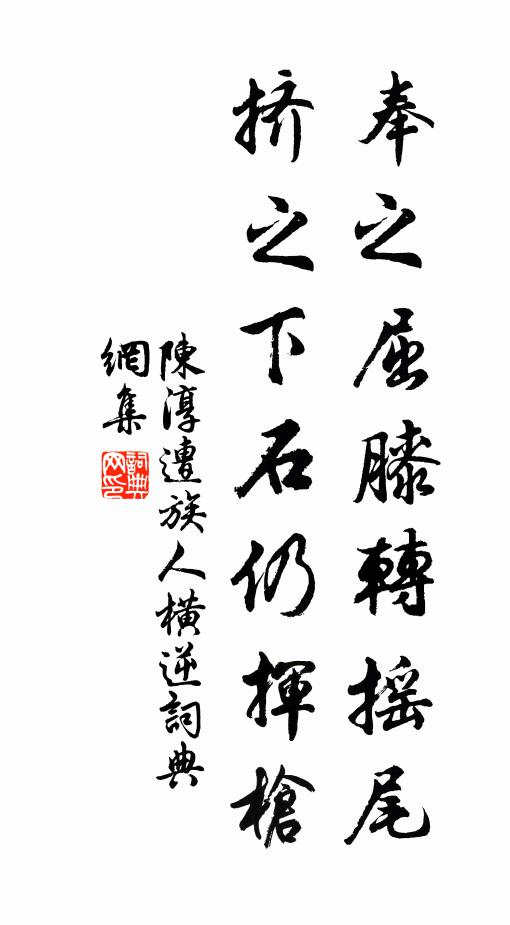 奉之屈膝轉摇尾
挤之下石仍揮槍
陳淳遭族人橫逆詞典
網集
詞典网印